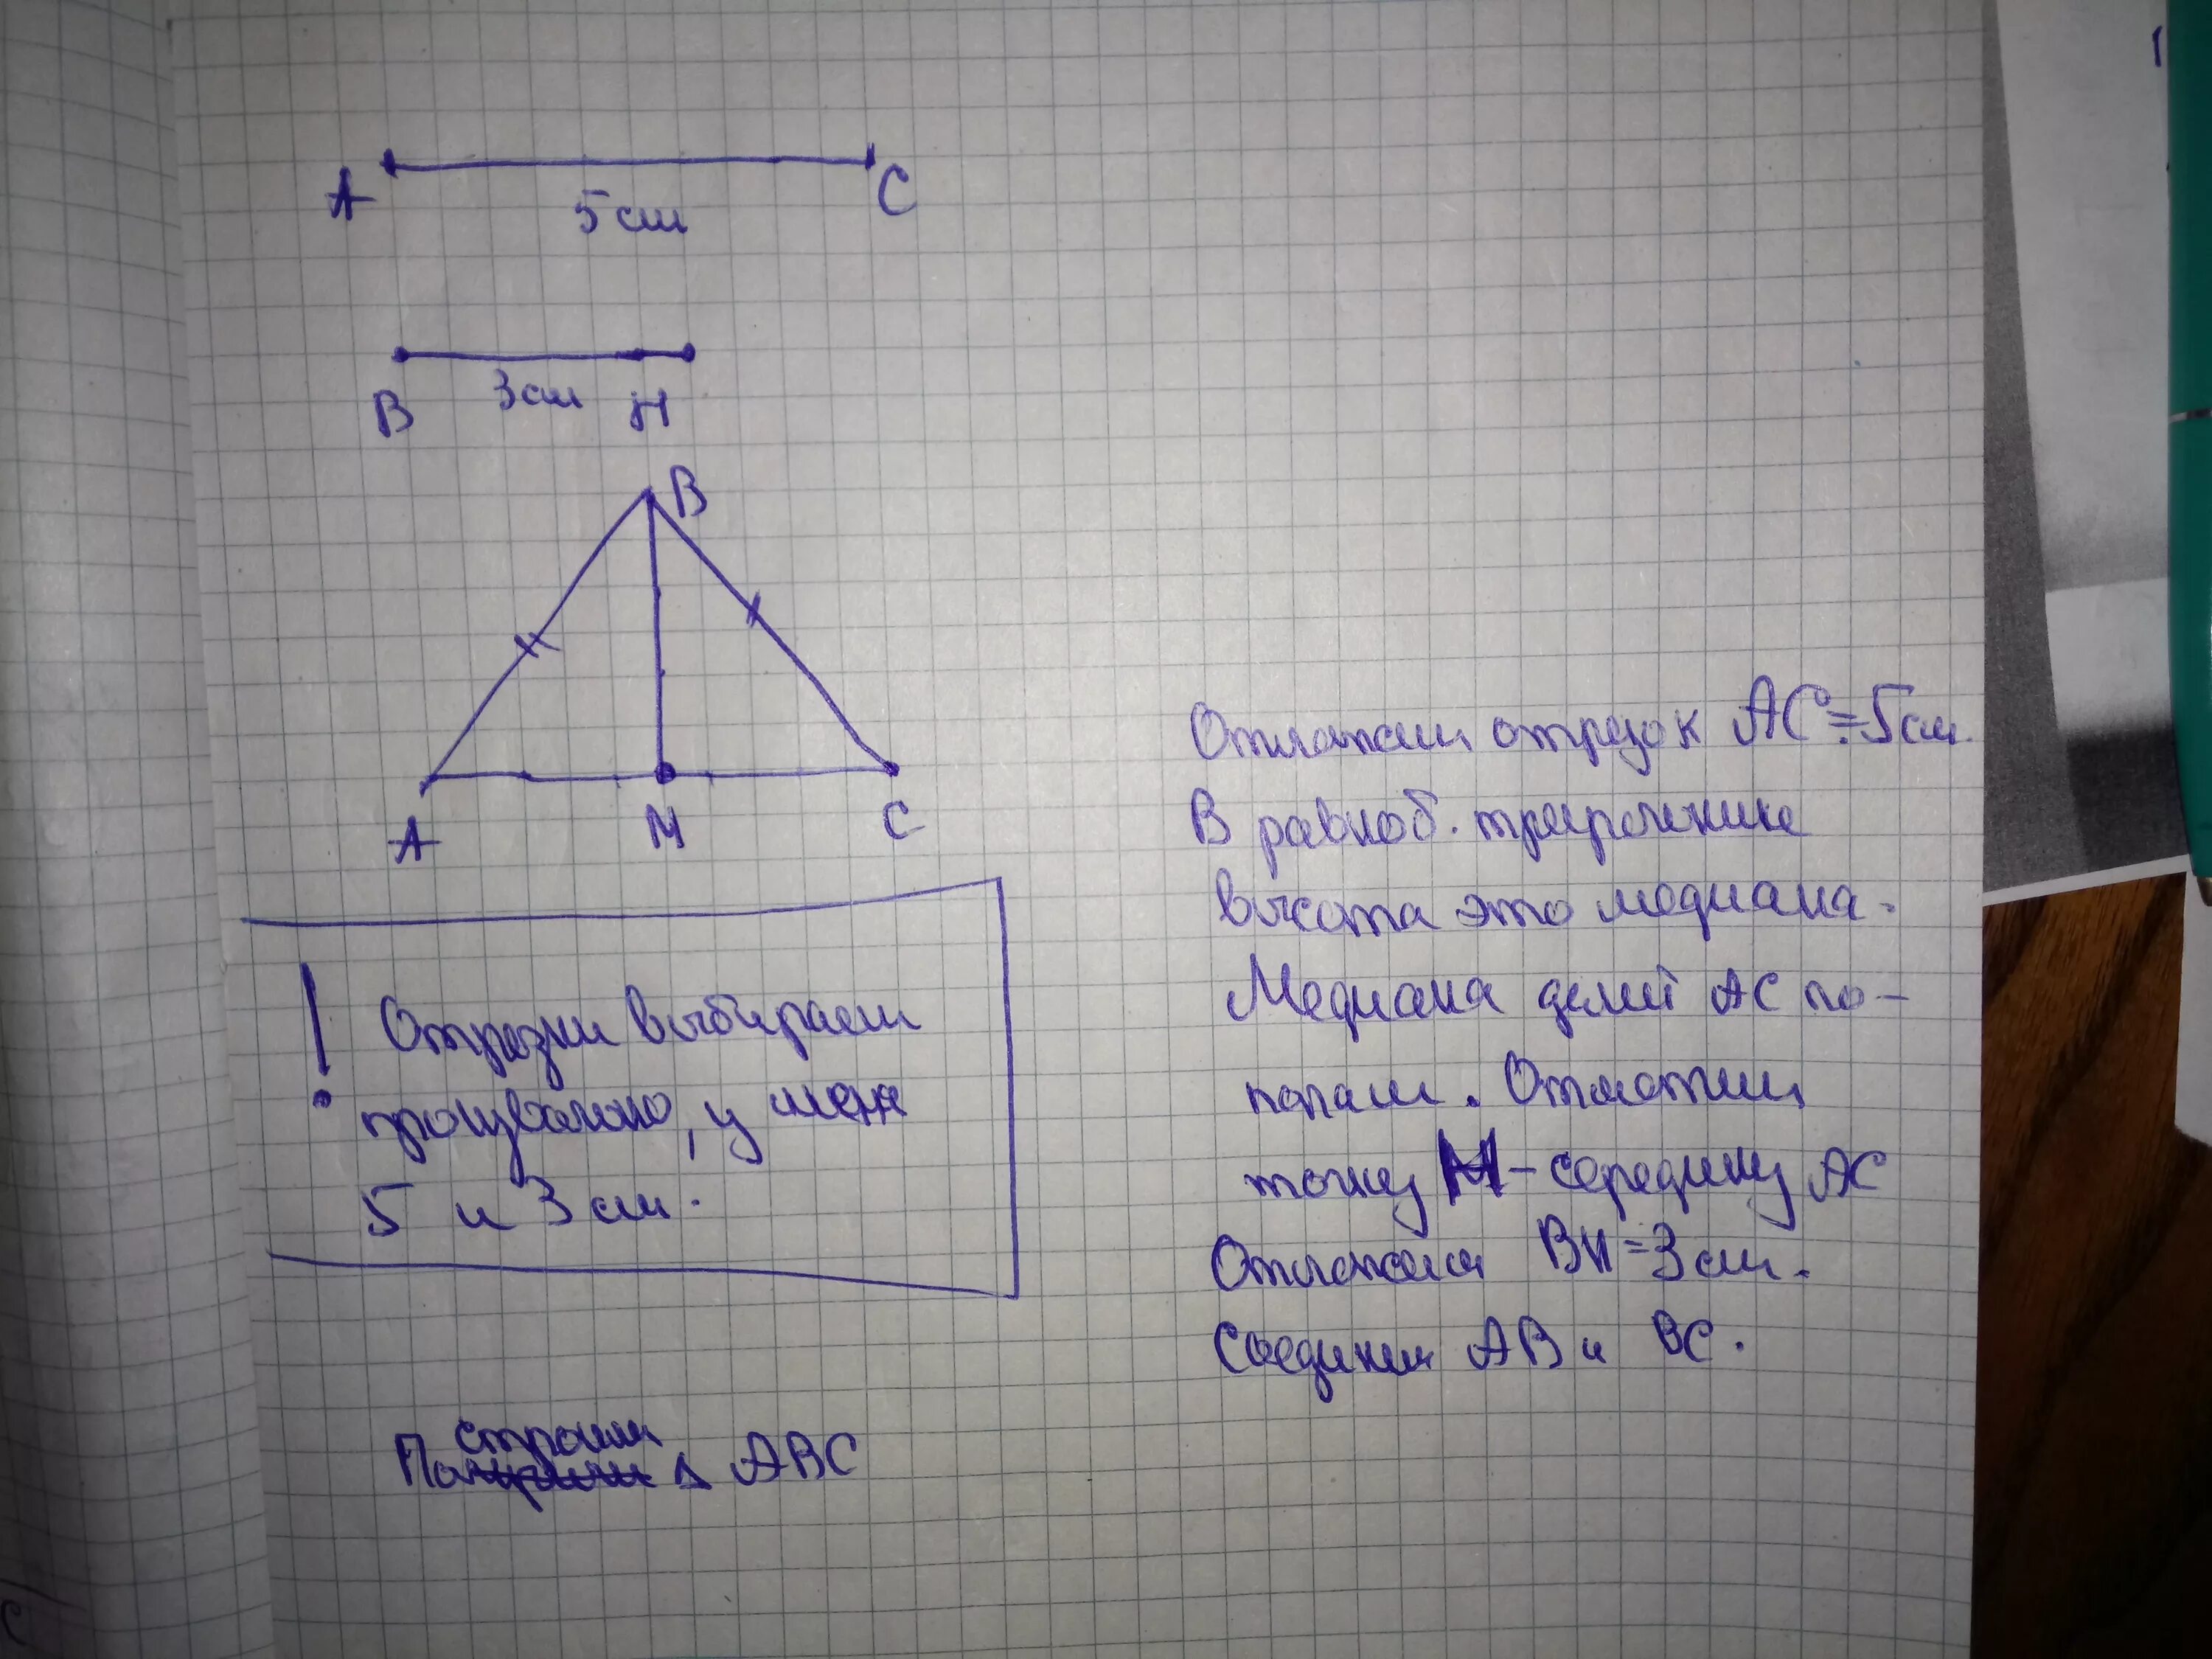 A
C
5 см
B
3 см
H
B
A
M
C
! Отрезки выбираем
произвольно, у меня
5 и 3 см.
Отложим отрезок AC = 5 см.
В равноб. треугольнике
высота это медиана.
Медиана делит AC по-
полам. Отметим
точку M - середину AC
Отложим BH = 3 см.
Соединим AB и BC.
строим
По Δ ABC